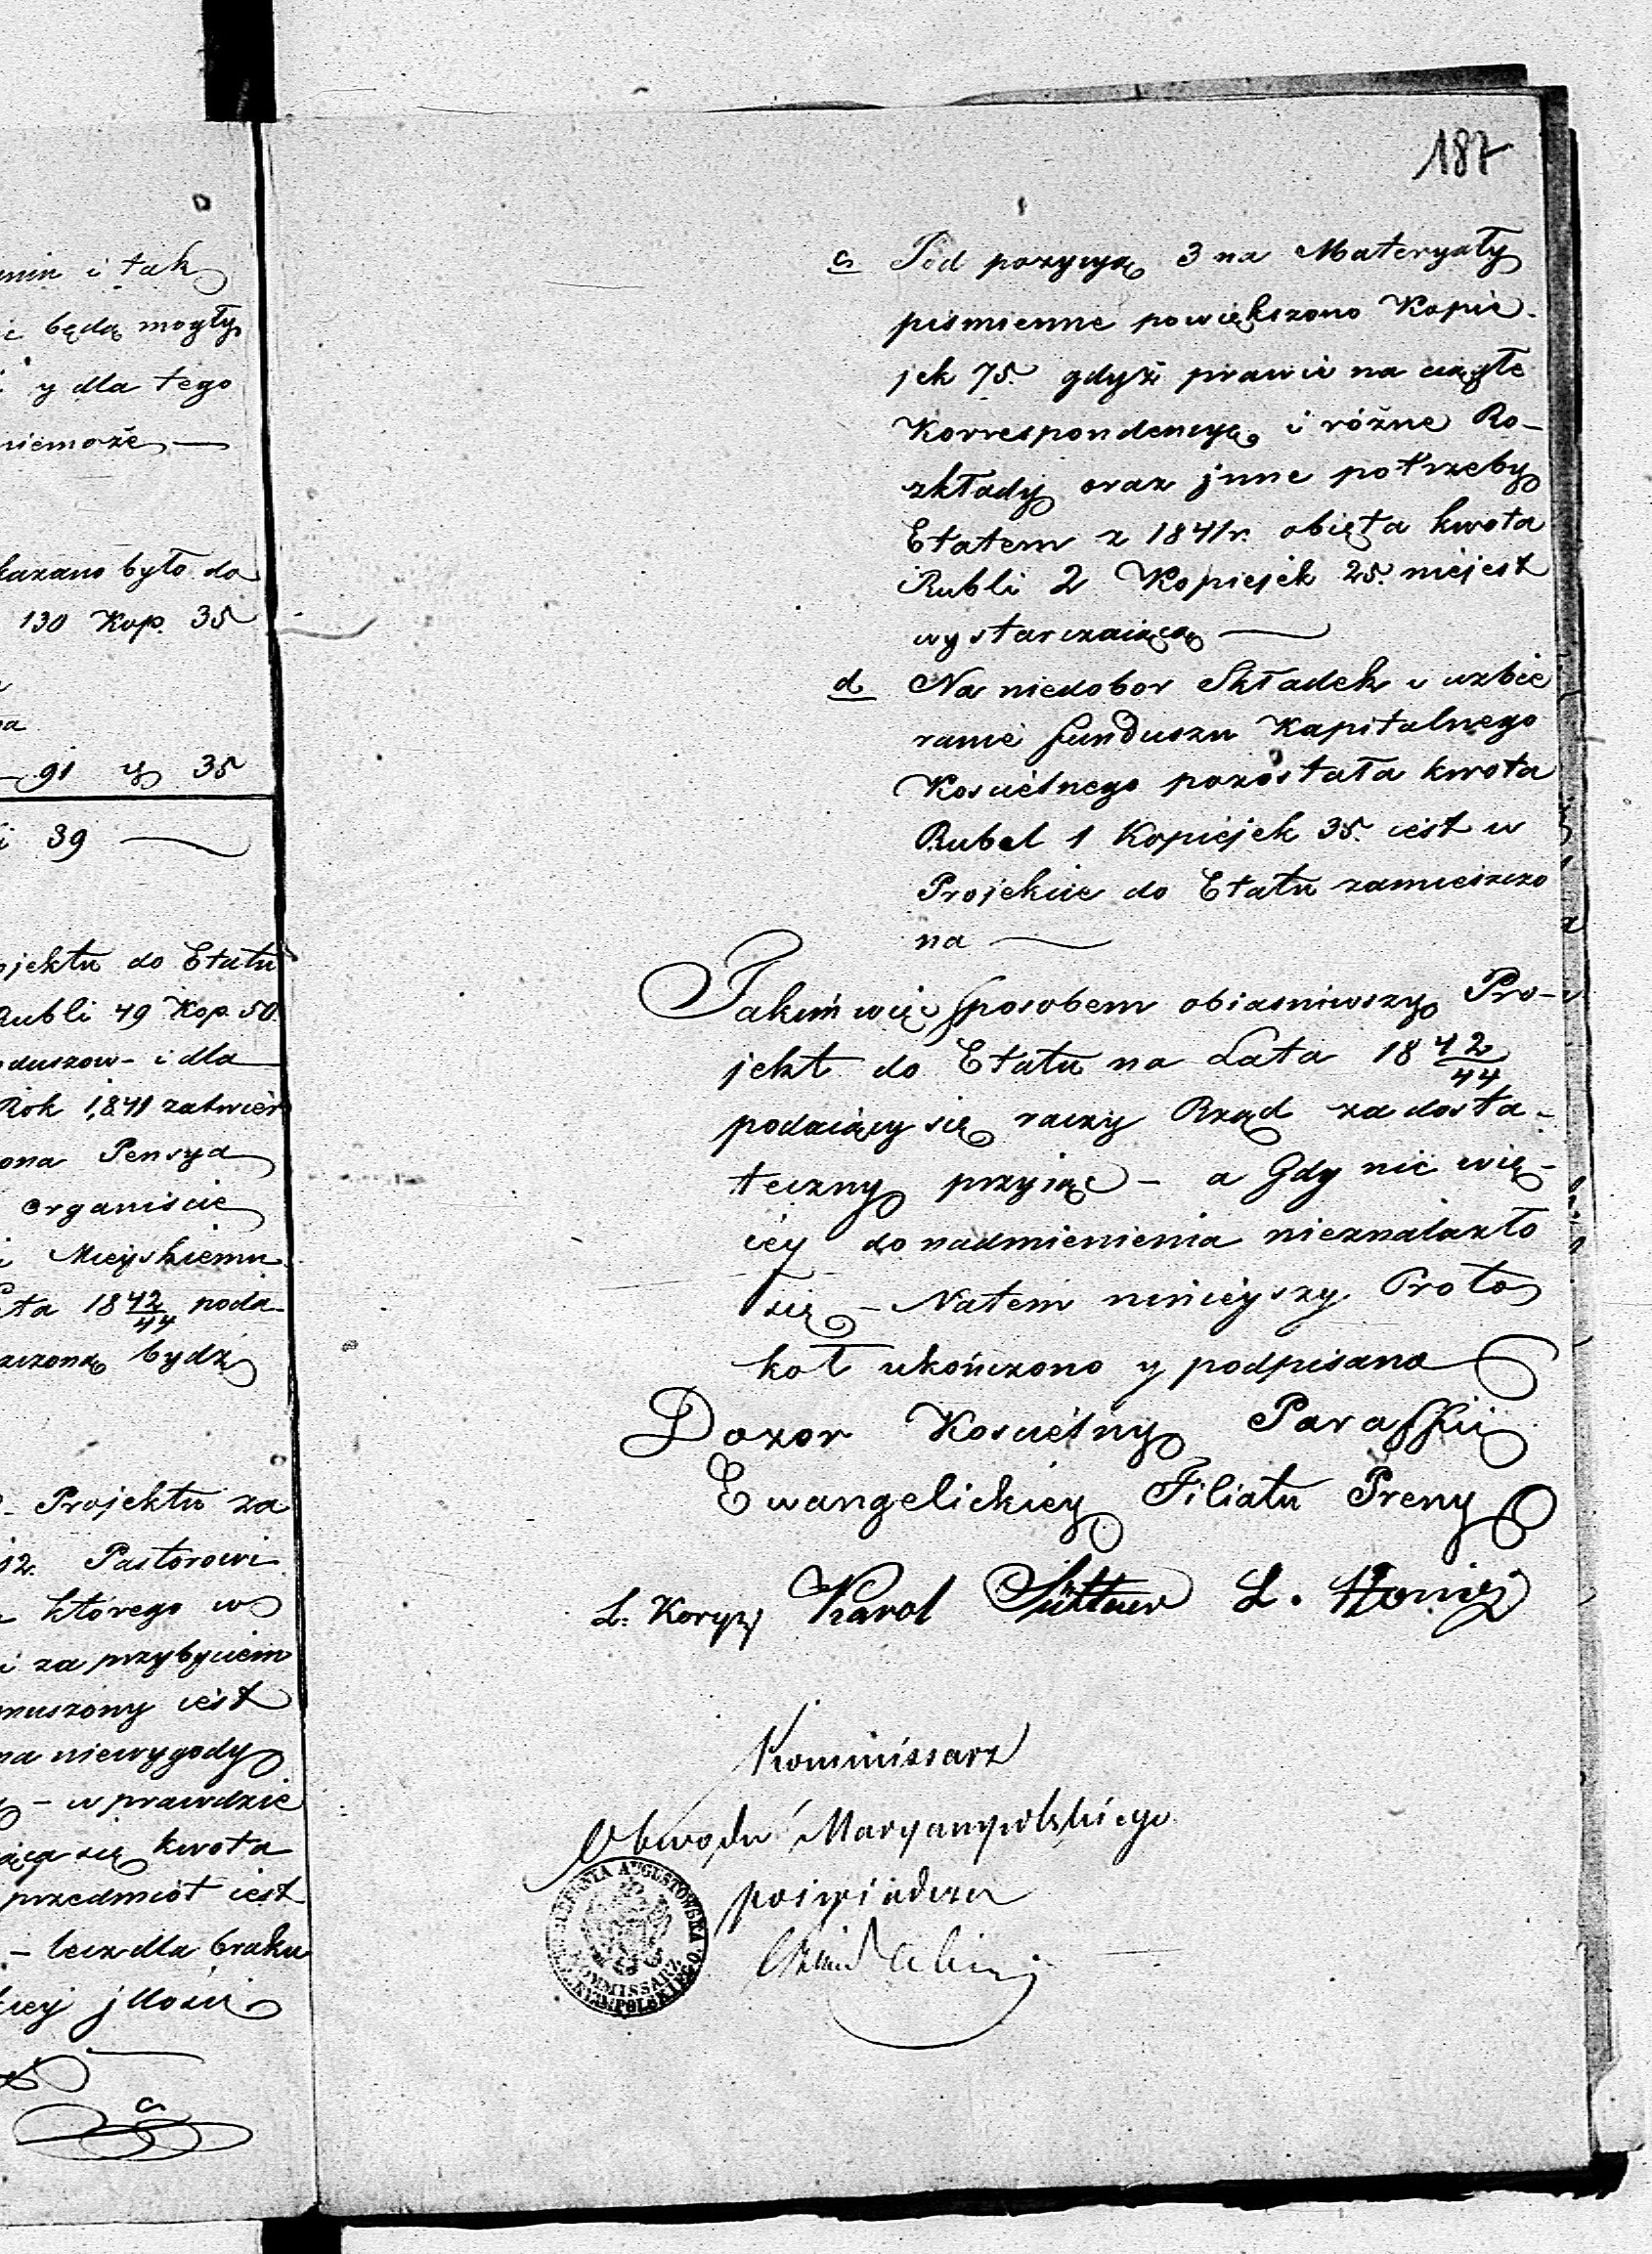 187
unin i tak
c będą mogły
y dla tego
niemoże —
kazano było do
130 Kop. 35
na
— 91 y 35
i 39 —
ojektu do Etatu
Rubli 49 Kop 50.
duszow – i dla
Rok 1841 zatwier
ona Pensya
organiscie
i Mieyskiemu
Lata 18 42/44 poda-
szczoną bydź
Projektu za
12. Pastorowi
którego w
i za przybyciem
muszony iest
na niewygody
– w prawdzie
ąca się kwota
przedmiot iest
– lecz dla braku
kiey jlości
c
c Pod pozycyą 3 na Materyały
pismienne powiększono Kopie-
jek 75. gdyż prawie na ciągłe
Korrespondencyą i różne Ro-
zkłady oraz jnne potrzeby
Etatem z 1841r. obięta kwota
Rubli 2 Kopiejek 25. niejest
wystarczaiącą —
d Na niedobor Składek i uzbie
ranie funduszu Kapitalnego
Kosciélnego pozostała kwota
Rubel 1 Kopiejek 35. iest w
Projekcie do Etatu zamieszczo
na —
Takim więc sposobem obiasniwszy Pro-
jekt do Etatu na Lata 18 42/44
podaiący się raczy Rząd za dosta-
teczny przyiąć – a Gdy nic wię-
cey do nadmienienia nieznalazło
się – Natem ninieyszy Proto
koł ukończono y podpisano
Dozor Kosciélny Paraffii
Ewangelickiey Filiału Preny
L. Koryzy Karol Süttner L. Honig
Kommissarz
Obwodu Maryampolskiego
poświadcza
GUBERNIA AUGUSTOWSKA
KOMMISSARZ O. MARYAMPOLSKIEGO